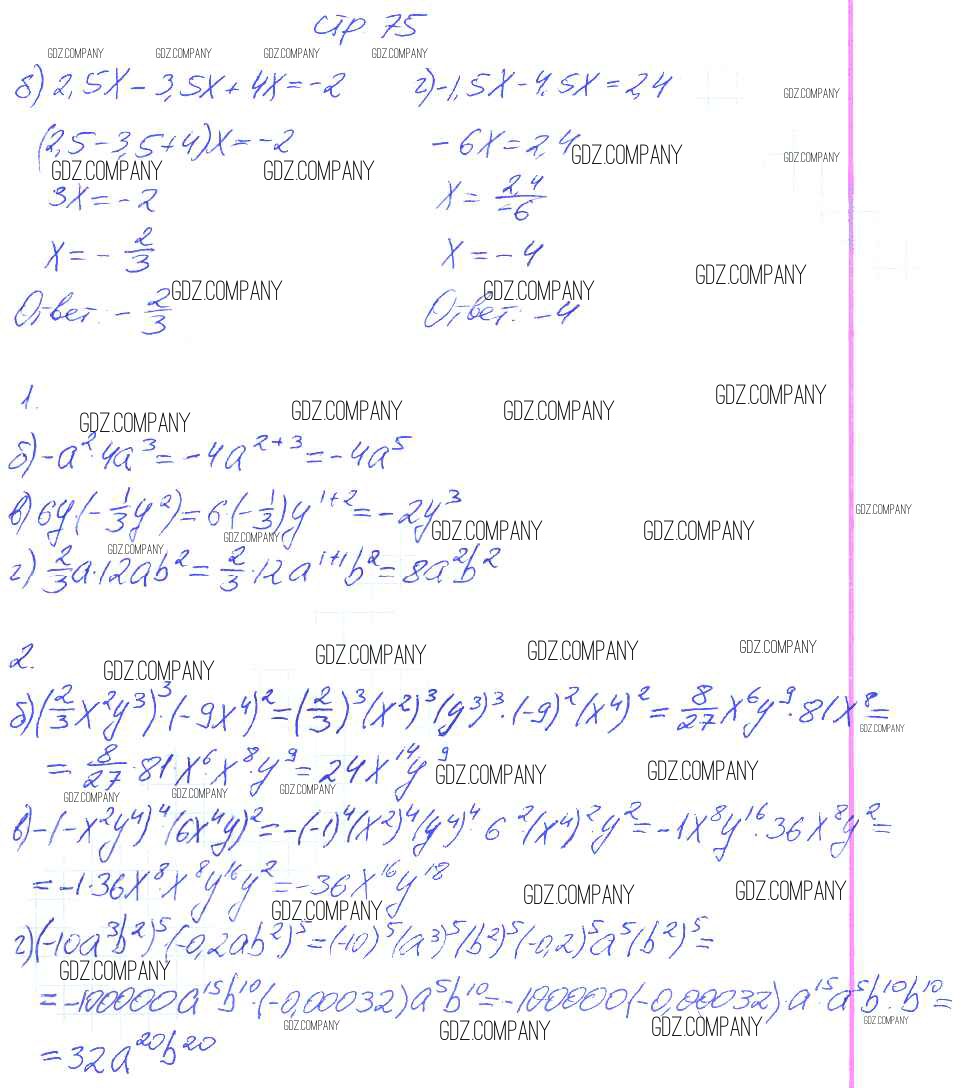 стр 75
GDZ.COMPANY GDZ.COMPANY GDZ.COMPANY GDZ.COMPANY
б) 2,5x - 3,5x + 4x = -2 г) -1,5x - 4,5x = 2,4
GDZ.COMPANY
(2,5 - 3,5 + 4)x = -2 - 6x = 2,4
GDZ.COMPANY GDZ.COMPANY GDZ.COMPANY GDZ.COMPANY
3x = -2 x = 2,4/-6
x = - 2/3 x = -4
GDZ.COMPANY
GDZ.COMPANY GDZ.COMPANY
Ответ: - 2/3 Ответ: -4
1.
GDZ.COMPANY GDZ.COMPANY GDZ.COMPANY GDZ.COMPANY
б) -a²·4a³ = -4a²⁺³ = -4a⁵
в) 6y·(-1/3y²) = 6·(-1/3)y¹⁺² = -2y³
GDZ.COMPANY GDZ.COMPANY GDZ.COMPANY GDZ.COMPANY
GDZ.COMPANY
г) 2/3a·12ab² = 2/3·12a¹⁺¹b² = 8a²b²
2.
GDZ.COMPANY GDZ.COMPANY GDZ.COMPANY GDZ.COMPANY
б) (2/3x²y³)³·(-9x⁴)² = (2/3)³(x²)³(y³)³·(-9)²(x⁴)² = 8/27x⁶y⁹·81x⁸ =
GDZ.COMPANY
= 8/27·81·x⁶·x⁸·y⁹ = 24x¹⁴y⁹
GDZ.COMPANY GDZ.COMPANY
GDZ.COMPANY GDZ.COMPANY GDZ.COMPANY
в) -(-x²y⁴)⁴·(6x⁴y)² = -(-1)⁴(x²)⁴(y⁴)⁴·6²(x⁴)²·y² = -1x⁸y¹⁶·36x⁸y² =
= -1·36x⁸x⁸y¹⁶y² = -36x¹⁶y¹⁸
GDZ.COMPANY GDZ.COMPANY GDZ.COMPANY
г) (-10a³b²)⁵·(-0,2ab²)⁵ = (-10)⁵(a³)⁵(b²)⁵(-0,2)⁵a⁵(b²)⁵ =
GDZ.COMPANY
= -100000a¹⁵b¹⁰·(-0,00032)a⁵b¹⁰ = -100000(-0,00032)·a¹⁵·a⁵b¹⁰·b¹⁰ =
GDZ.COMPANY GDZ.COMPANY GDZ.COMPANY GDZ.COMPANY
= 32a²⁰b²⁰